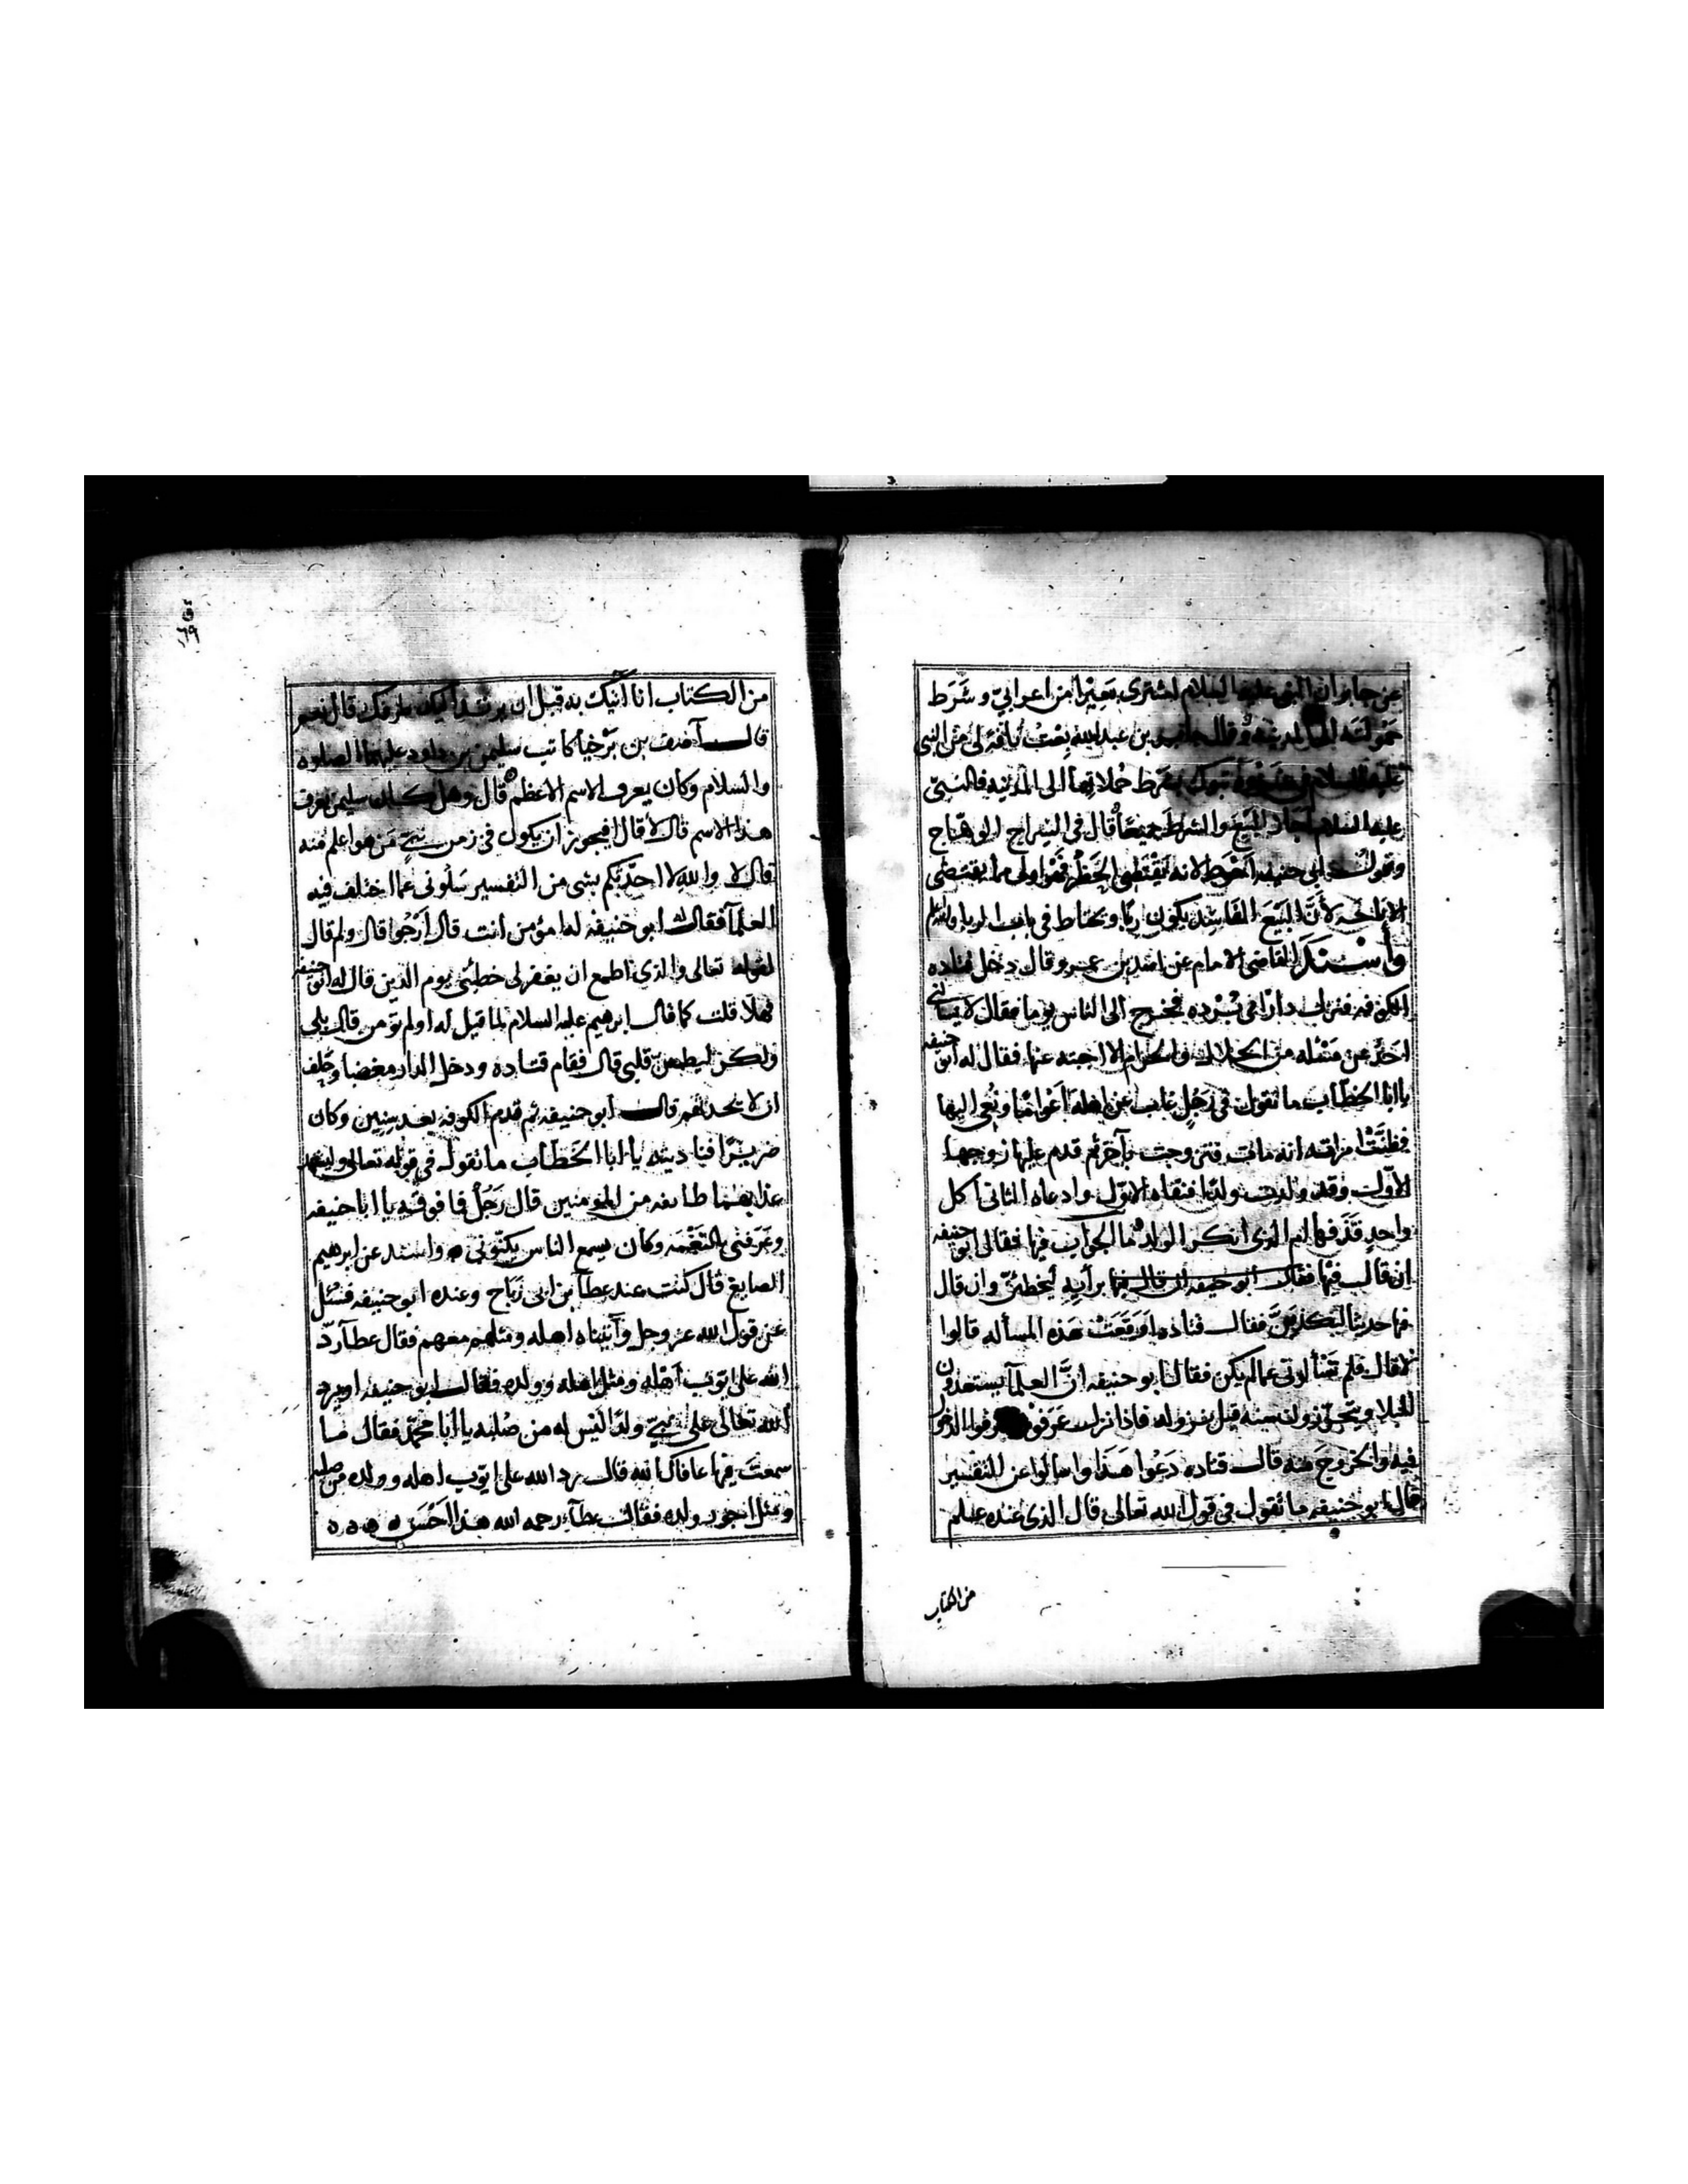 عن جابر ان النبى عليه السلام اشترى بَعِيْرًا من اعرابىّ وشَرَط
حَمُولَتَه الى المدينه وقال جابر بن عبد الله بِعْتُ ناقة لى من النبى
عليه السلام فى غزوة تبوك بشرط حُمْلانها الى المدينه فالنبىّ
عليه السلام اجاز البيع والشرط جميعًا قال فى السِراج الوهّاج
وقول ابى حنيفه اَحْوَط لانه يَقْتَضِى الحَظْر فَهْوَ اولى مما يقتضى
الاباحه لأنَّ البَيْعَ الفَاسِد يكون رِبًا ويحتاط فى باب الربا والله اعلم
وأسْنَدَ القاضى الامام عن اسد بن عمرو قال دخل قتاده
الكوفه فنزل دار ابى بُرْده فخرج الى الناس يوما فقال لا يسالنى
احَدٌ عن مَسْئله من الحلال والحرام الا اجبته عنها فقال له ابو حنيفه
يا ابا الخطّاب ما تقول فى رَجُلٍ غاب عن اهله اَعْوَامًا ونُعِى اليها
فظَنَّتْ امراته انه مات فتزوجت بآخر ثم قدم عليها زوجها
الاوّل وقد ولدت ولدًا فنفاه الاوّل وادعاه الثانى اكل
واحدٍ قَذَفها ام الذى انكر الولد ما الجواب فيها فقال ابو حنيفه
ان قال فيها فقال ابو حنيفه ان قال فيها برأيِه ليخطئنّ وان قال
فيها حديثا ليَكذِبَنَّ فقال قتاده اَوَقَعَتْ هَذه المسأله قالوا
لا قال فلم تَسْألونى عمالم يكن فقال ابو حنيفه انّ العلمآ يستعدون
للبلا ويتحرّزون منه قبل نزوله فاذا نزل عَرَفوْا الدخول
فيه والخروجَ منه قال قتاده دَعُوا هَذا واسالوا عن التفسير
قال ابو حنيفه ما تقول فى قول الله تعالى قال الذى عنده علم
من الكتاب
ق
٦٩
من الكتاب انا اٰتيك به قبل ان يرتد اليك طرفك قال نعم
قال آصف بن بَرْخيا كاتب سليمن بن داود عليهما الصلوه
والسلام وكان يعرف الاسم الاعظم قال وهل كان سليمن يعرف
هذا الاسم قال لا قال افيجوز ان يكون فى زمن نبىٍّ مَن هو اعلم منه
قال لا والله لا احدّثكم بشى من التفسير سَلُونى عما اختلف فيه
العلمآ فقال له ابو حنيفه له امؤمن انت قال اَرْجُوا قال ولم قال
لقوله تعالى والذى اطمع ان يغفر لى خطيئتى يوم الدين قال له ابو حنيفه
فهلّا قلت كما قال ابرهيم عليه السلام لما قيل له اولم تؤمن قال بلى
ولكن ليطمئن قلبى قال فقام قتاده ودخل الدار مغضبا وحَلف
ان لا يحدثهم قال ابو حنيفه ثم قدم الكوفه بعد سِنِين وكان
ضريرًا فناديته يا ابا الخَطاب ما تقول فى قوله تعالى وليشهد
عذابهما طائفه من المومنين قال رَجُل فما فوقه يا ابا حنيفه
وعَرَفنى بالنَغْمه وكان يسمع الناس يكنّونى ه واسند عن ابرهيم
الصايغ قال كنت عند عطآ بن ابى رَبَاح وعنده ابو حنيفه فسُئل
عن قول الله عز وجل وآتيناه اهله ومثلهم معهم فقال عطآ ردّ
الله على ايّوب اَهْله ومثل اهله وولده فقال ابو حنيفه اويرد
الله تعالى على نبىٍّ ولدًا ليس له من صُلبه يا أبا محمّد فقال ما
سمعتَ فيها عافاك الله قال رد الله على ايّوب اهله وولده من صلبه
ومثل اجور ولده فقال عطآء رحمه الله هذا اَحْسَن ه ه ه